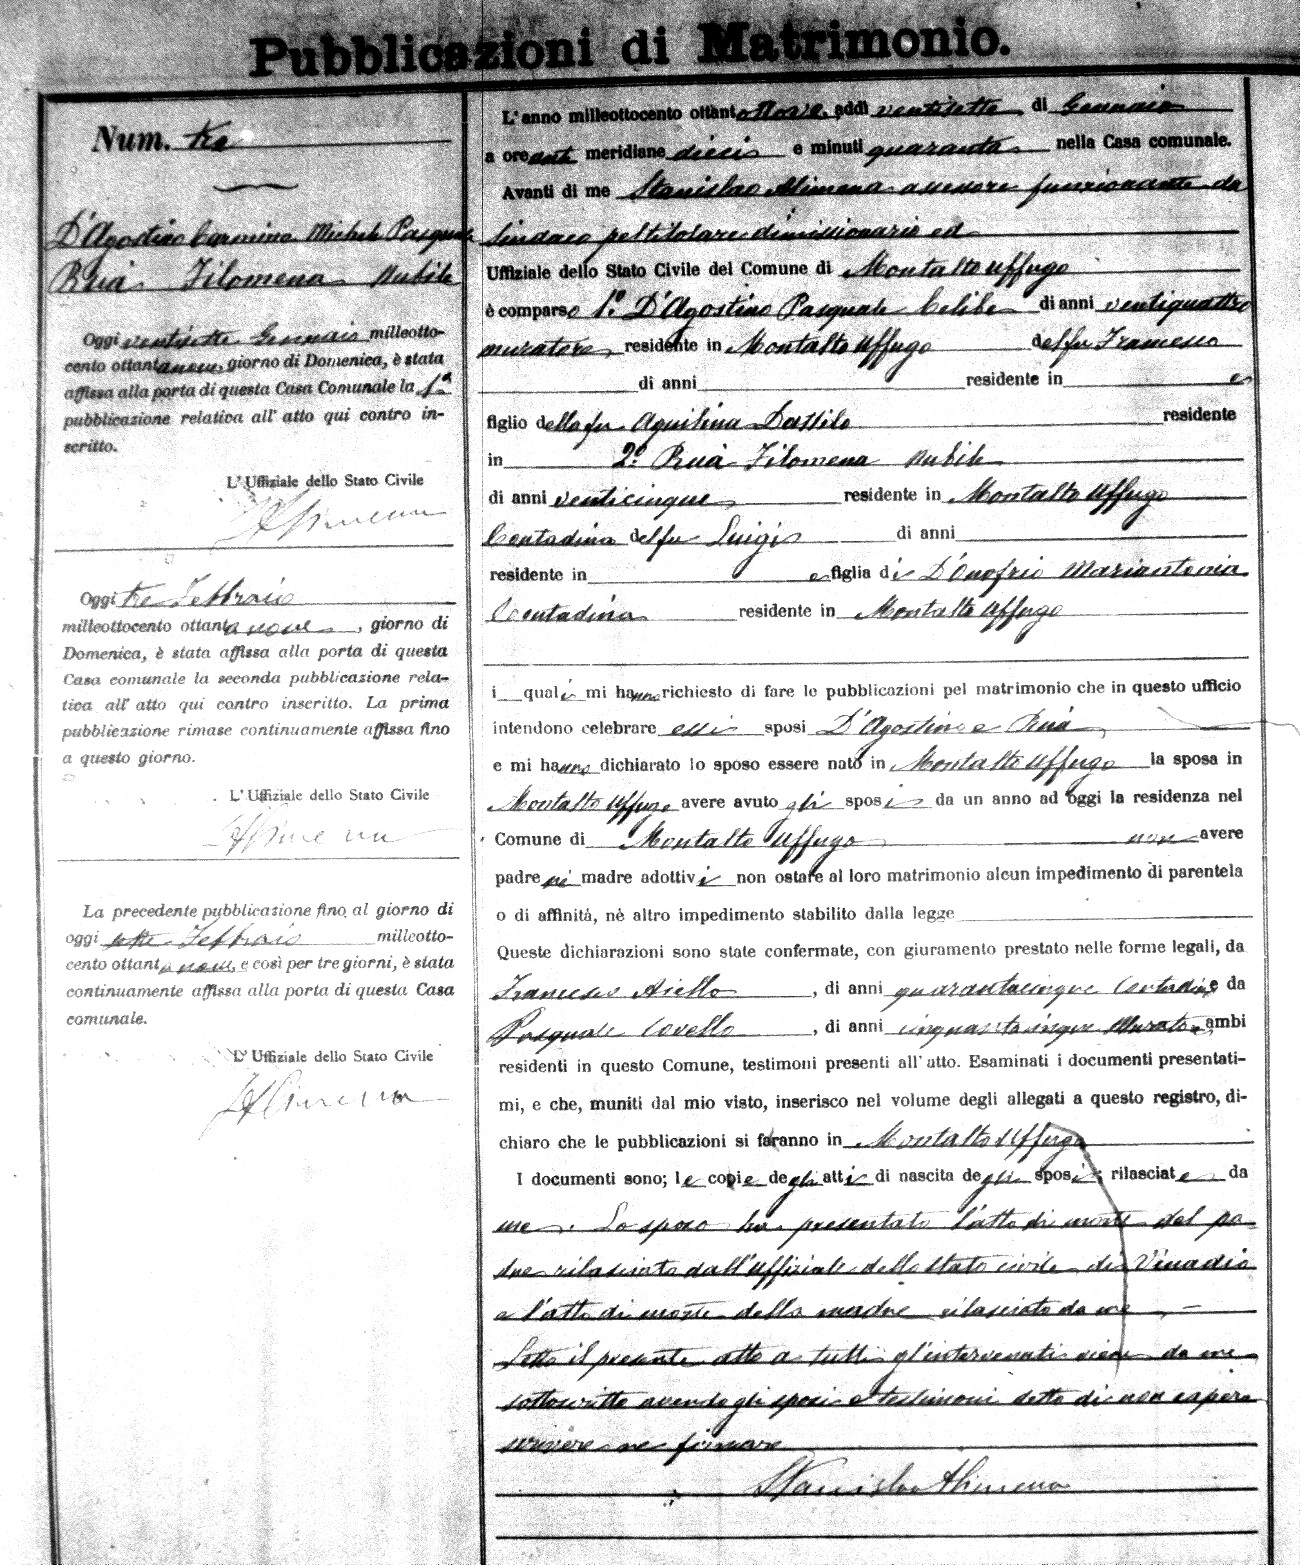 Pubblicazioni di Matrimonio.
Num. tre
D'Agostino Carmine Michele Pasquale
Ruà Filomena nubile
Oggi ventisette Gennaio milleotto-
cento ottantanove, giorno di Domenica, è stata
affissa alla porta di questa Casa Comunale la 1ª
pubblicazione relativa all' atto qui contro in-
scritto.
L' Uffiziale dello Stato Civile
Oggi tre Febbraio
milleottocento ottantanove, giorno di
Domenica, è stata affissa alla porta di questa
Casa comunale la seconda pubblicazione rela-
tiva all' atto qui contro inscritto. La prima
pubblicazione rimase continuamente affissa fino
a questo giorno.
L' Uffiziale dello Stato Civile
La precedente pubblicazione fino al giorno di
oggi sette Febbraio milleotto-
cento ottantanove, e così per tre giorni, è stata
continuamente affissa alla porta di questa Casa
comunale.
L' Uffiziale dello Stato Civile
L' anno milleottocento ottantanove, addì ventisette di Gennaio
a ore anti meridiane dieci e minuti quaranta nella Casa comunale.
Avanti di me Stanislao Alimena assessore funzionante da
Sindaco pel titolare dimissionario ed
Uffiziale dello Stato Civile del Comune di Montalto Uffugo
è comparso 1.º D'Agostino Pasquale Celibe di anni ventiquattro
muratore residente in Montalto Uffugo del fu Francesco
di anni residente in e
figlio della fu Aquilina residente
in 2.º Ruà Filomena nubile
di anni venticinque residente in Montalto Uffugo
Contadina del fu Luigi di anni
residente in e figlia di D'Onofrio Mariantonia
Contadina residente in Montalto Uffugo
i quali mi hanno richiesto di fare le pubblicazioni pel matrimonio che in questo ufficio
intendono celebrare essi sposi D'Agostino e Ruà
e mi hanno dichiarato lo sposo essere nato in Montalto Uffugo la sposa in
Montalto Uffugo avere avuto gli sposi da un anno ad oggi la residenza nel
Comune di Montalto Uffugo non avere
padre nè madre adottivi non ostare al loro matrimonio alcun impedimento di parentela
o di affinità, nè altro impedimento stabilito dalla legge
Queste dichiarazioni sono state confermate, con giuramento prestato nelle forme legali, da
Francesco Aiello, di anni quarantacinque Contadino e da
Pasquale Covello, di anni cinquantacinque Muratore ambi
residenti in questo Comune, testimoni presenti all' atto. Esaminati i documenti presentati-
mi, e che, muniti dal mio visto, inserisco nel volume degli allegati a questo registro, di-
chiaro che le pubblicazioni si faranno in Montalto Uffugo
I documenti sono; le copie degli atti di nascita degli sposi; rilasciate da
me. Lo sposo ha presentato l'atto di morte del pa-
dre rilasciato dall'Uffiziale dello stato civile di Vinadio
e l'atto di morte della madre rilasciato da me
Letto il presente atto a tutti gl'intervenuti viene da me
sottoscritto avendo gli sposi e testimoni detto di non sapere
scrivere ne firmare
Stanislao Alimena